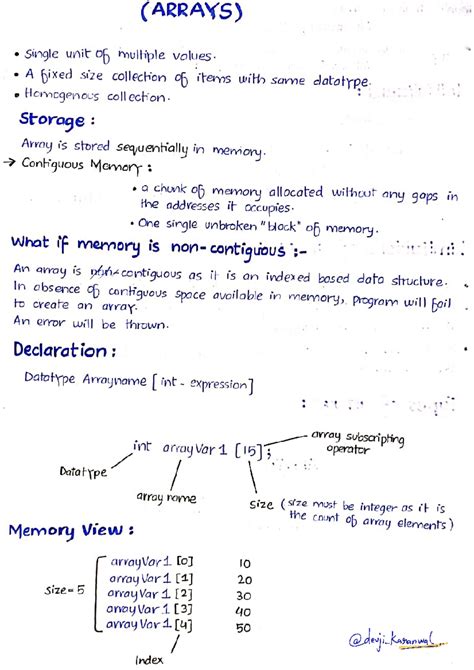 (ARRAYS)
• Single unit of multiple values.
• A fixed size collection of items with same datatype.
• Homogenous collection.
Storage :
Array is stored sequentially in memory.
→ Contiguous Memory :
• a chunk of memory allocated without any gaps in
the addresses it occupies.
• One single unbroken "block" of memory.
What if memory is non-contiguous :-
An array is contiguous as it is an indexed based data structure.
In absence of contiguous space available in memory, program will fail
to create an array.
An error will be thrown.
Declaration :
Datatype Arrayname [ int - expression]
array subscripting
operator
int arrayVar 1 [15];
Datatype
array name
size (size must be integer as it is
the count of array elements)
Memory View :
arrayVar 1 [0] 10
arrayVar 1 [1] 20
size = 5 arrayVar 1 [2] 30
arrayVar 1 [3] 40
arrayVar 1 [4] 50
Index